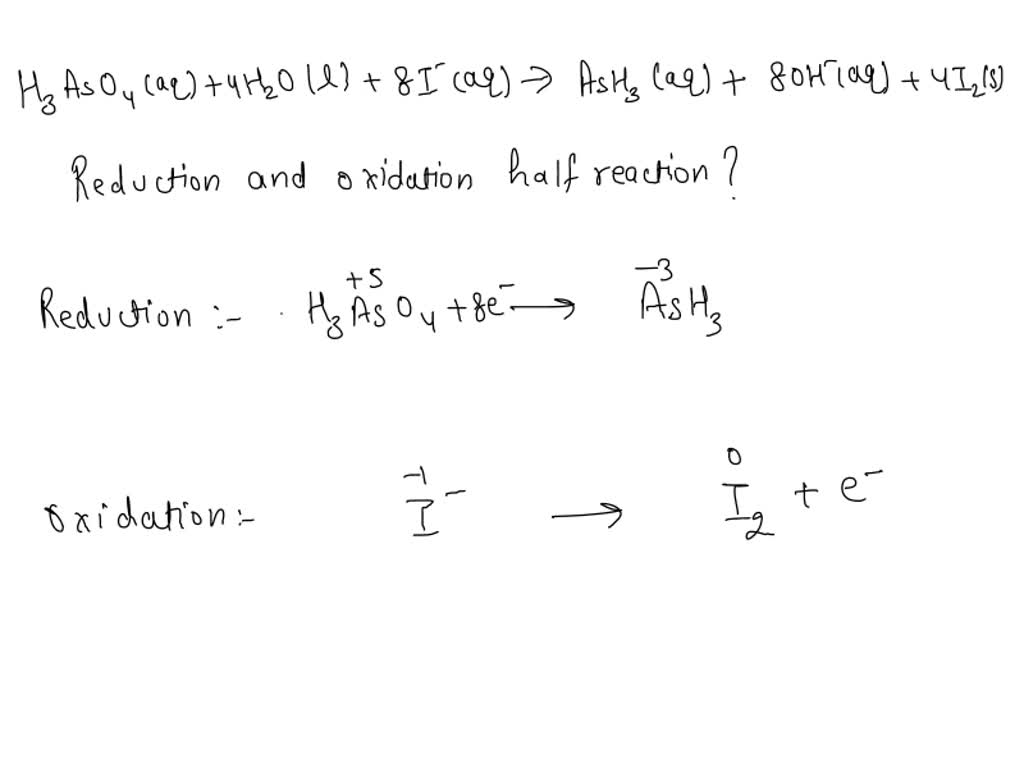 H₃AsO₄(aq)+4H₂O(l)+8I⁻(aq)→AsH₃(aq)+8OH⁻(aq)+4I₂(s)
Reduction and oxidation half reaction?
Reduction :- H₃AsO₄+8e⁻→AsH₃
+5 -3
Oxidation:- I⁻ → I₂ + e⁻
-1 0